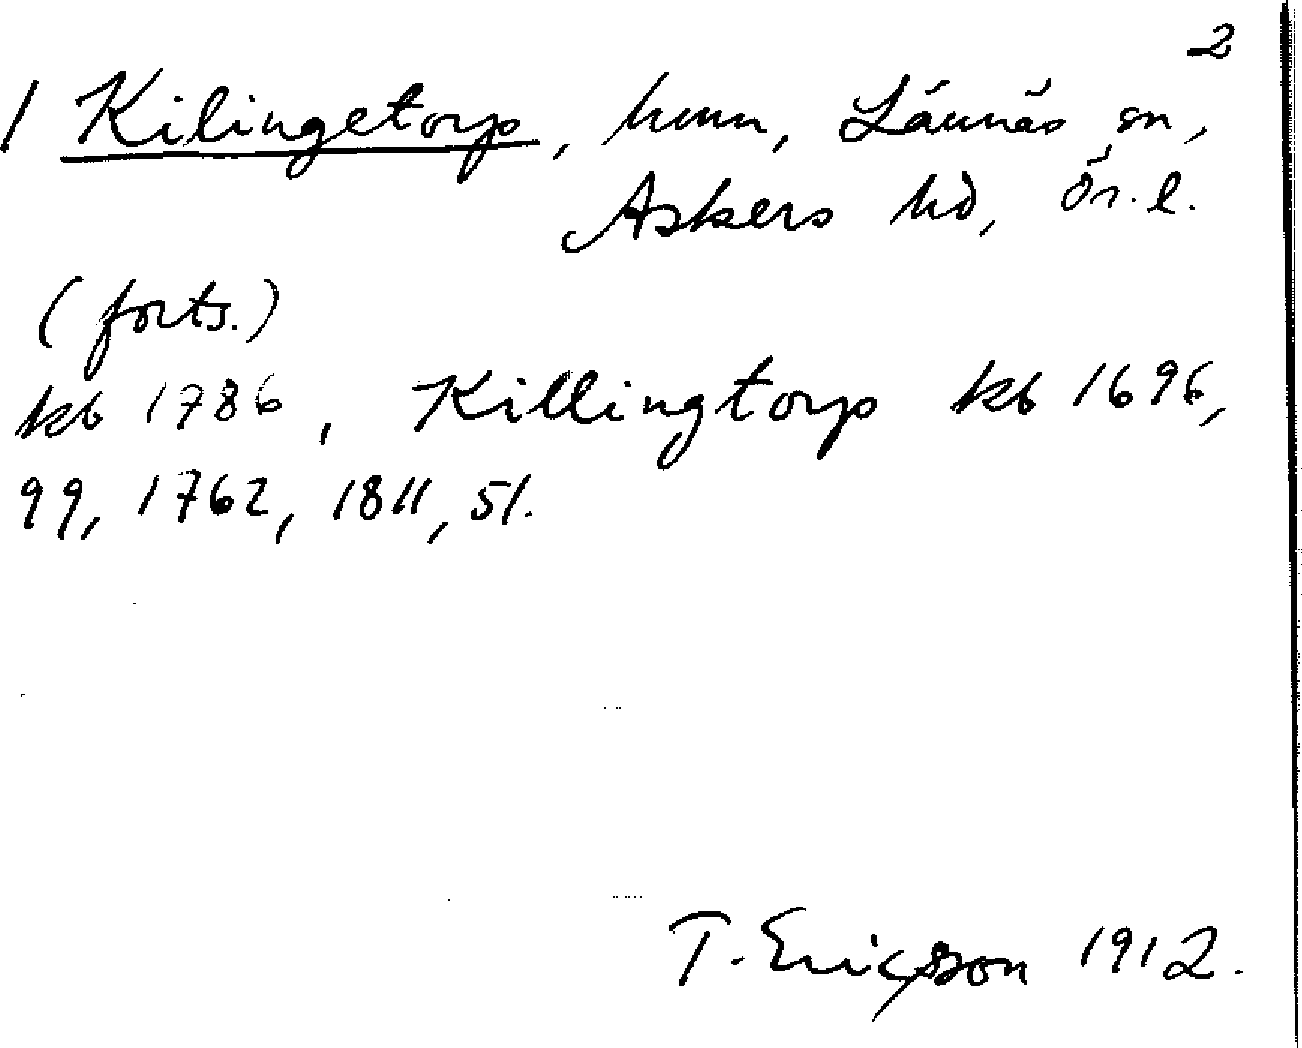 2
1 Kilingetorp, hmn, Lännäs sn,
Askers hd, Ör. l.
(forts.)
kb 1786, Killingtorp kb 1696,
99, 1762, 1811, 51.
T. Ericsson 1912.